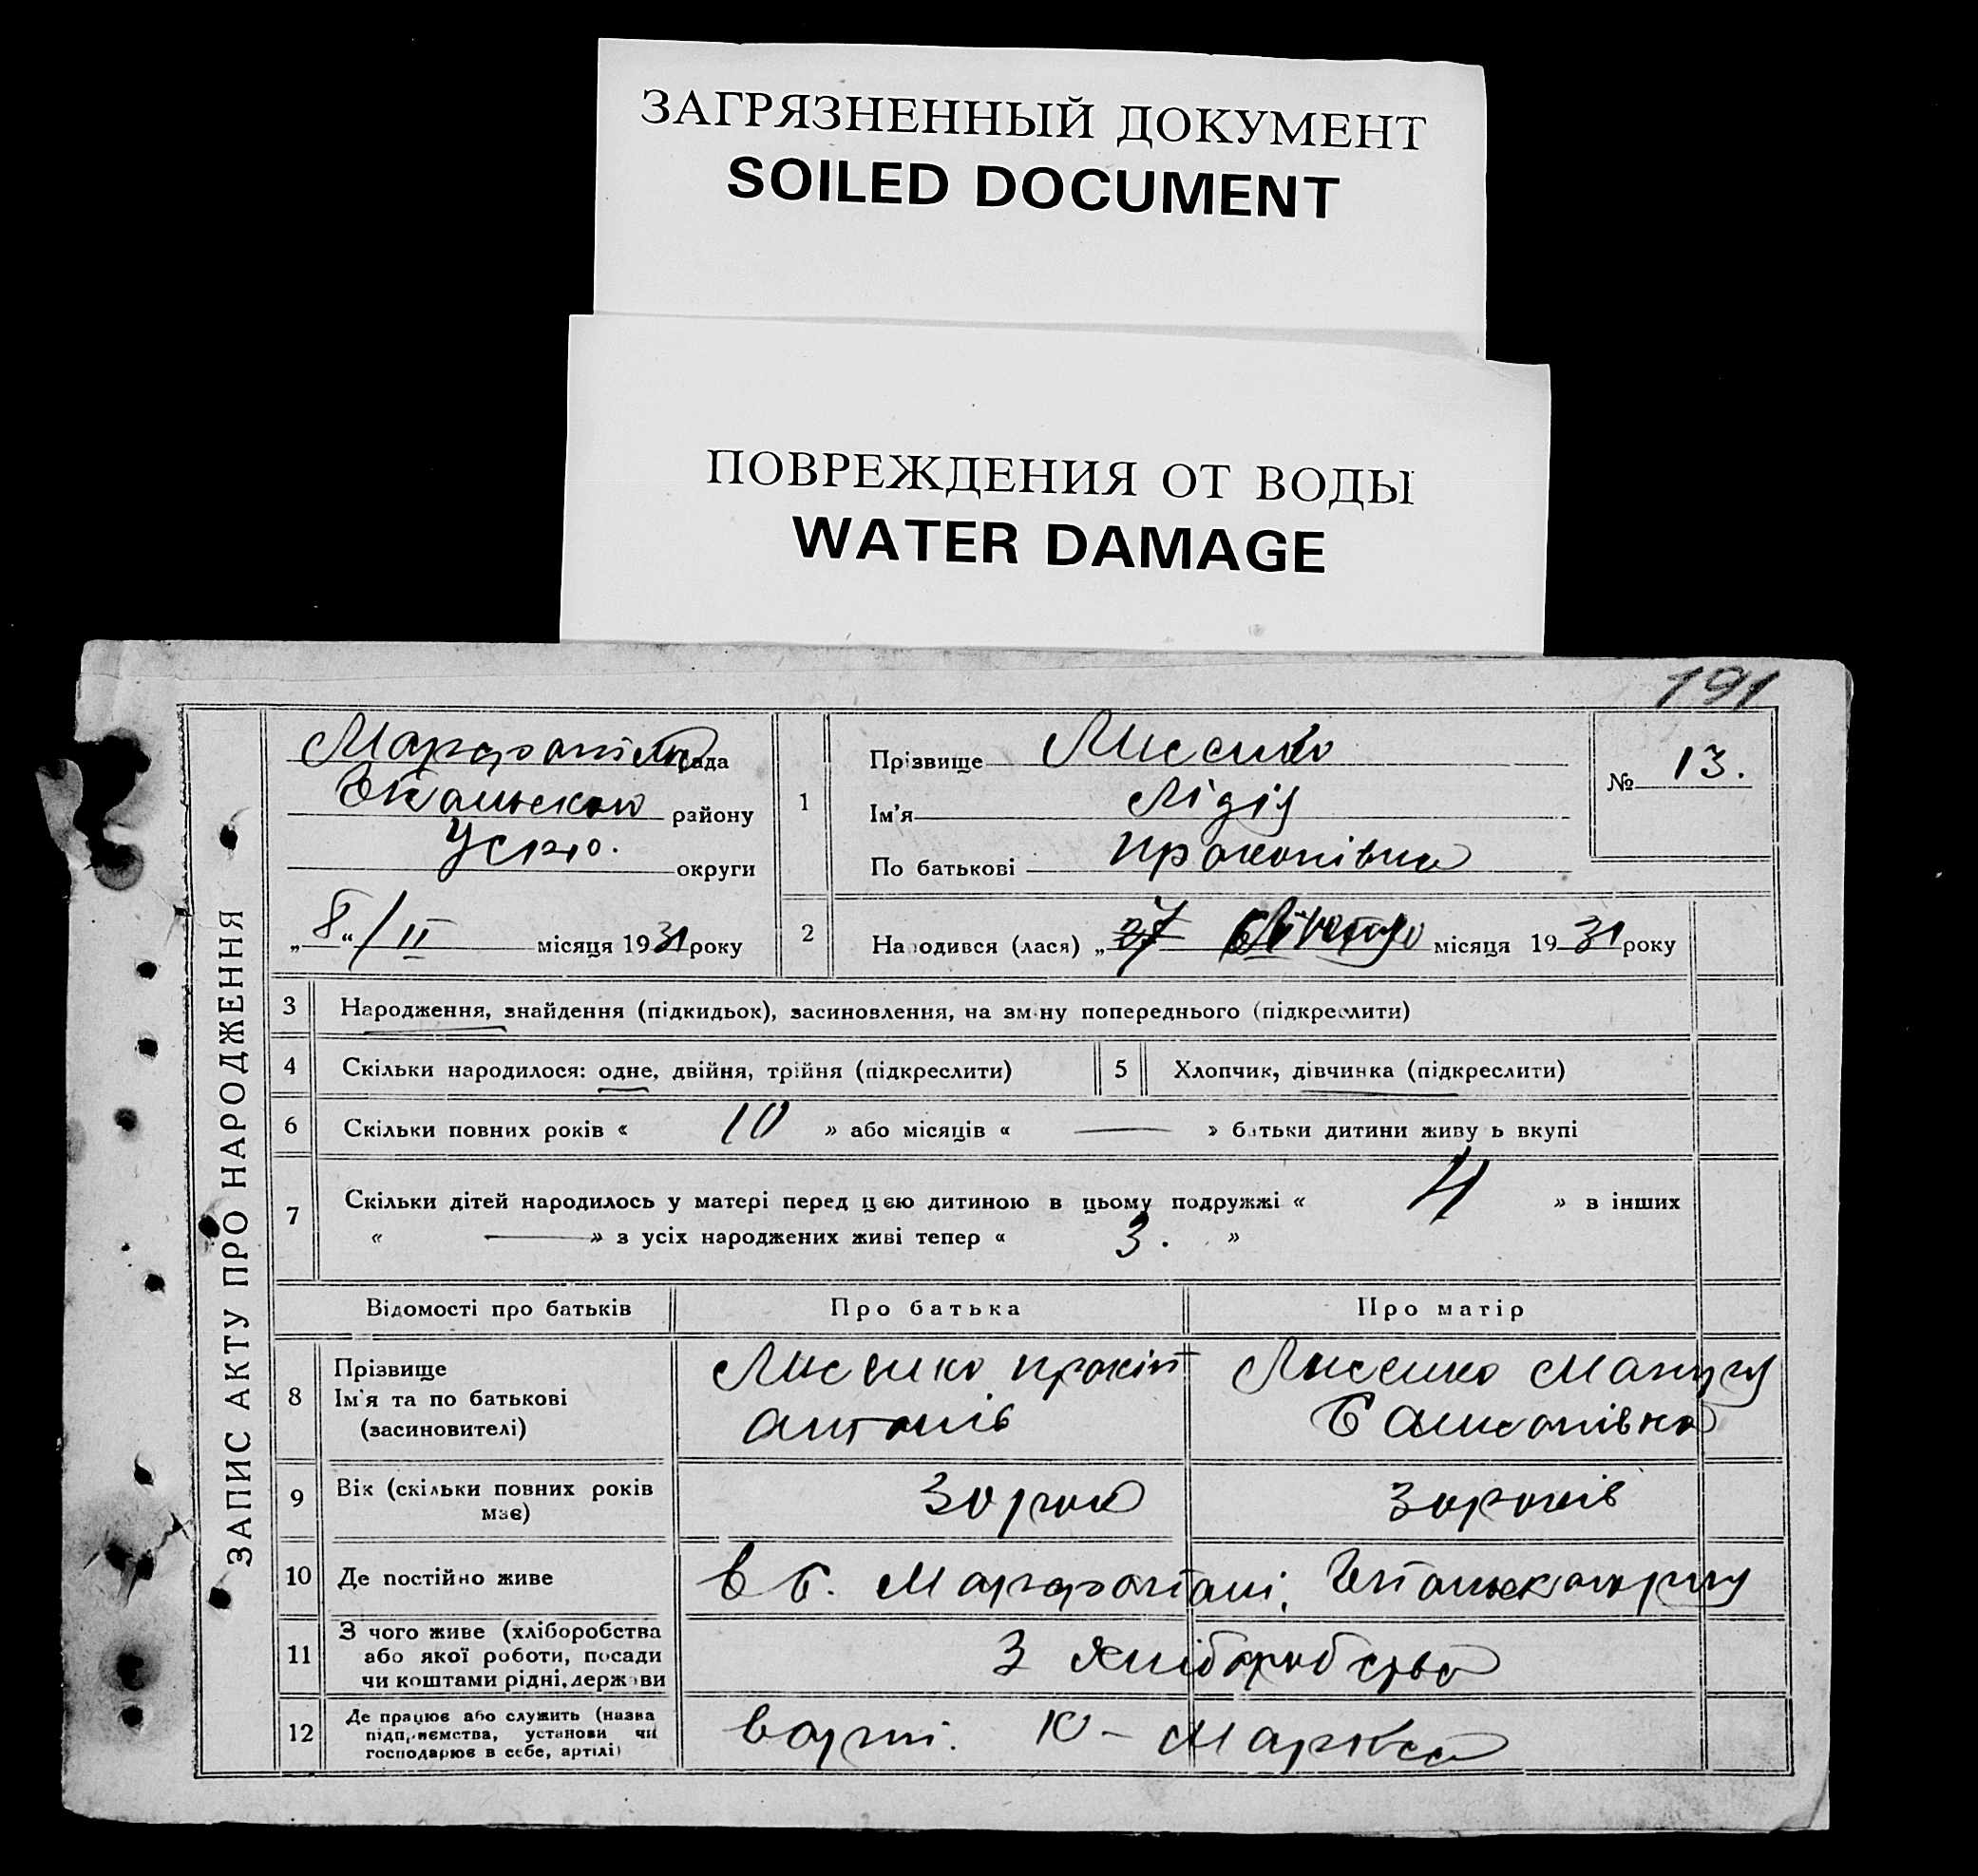 ЗАГРЯЗНЕННЫЙ ДОКУМЕНТ
SOILED DOCUMENT
ПОВРЕЖДЕНИЯ ОТ ВОДЫ
WATER DAMAGE
191
ЗАПИС АКТУ ПРО НАРОДЖЕННЯ
рада
району
округи
„8“/II місяця 1931 року
1
Прізвище Лисенко
Ім'я Лідія
По батькові Прокопівна
№ 13.
2
Народився (лася) „27 Лютого місяця 1931 року
3 Народження, знайдення (підкидьок), засиновлення, на зміну попереднього (підкреслити)
4 Скільки народилося: одне, двійня, трійня (підкреслити)
5 Хлопчик, дівчинка (підкреслити)
6 Скільки повних років « 10 » або місяців « — » батьки дитини живуть вкупі
7 Скільки дітей народилось у матері перед цією дитиною в цьому подружжі « 4 » в інших
« — » з усіх народжених живі тепер « 3. »
Відомості про батьків Про батька Про матір
8 Прізвище
Ім'я та по батькові
(засиновителі)
Лисенко Прокіп
Антонів
Лисенко
9 Вік (скільки повних років
має)
30 рок
30 років
10 Де постійно живе
в с.
11 З чого живе (хліборобства
або якої роботи, посади
чи коштами рідні, держави
З хліборобства
12 Де працює або служить (назва
підприємства, установи чи
господарює в себе, артілі)
в арті. К-Маркса